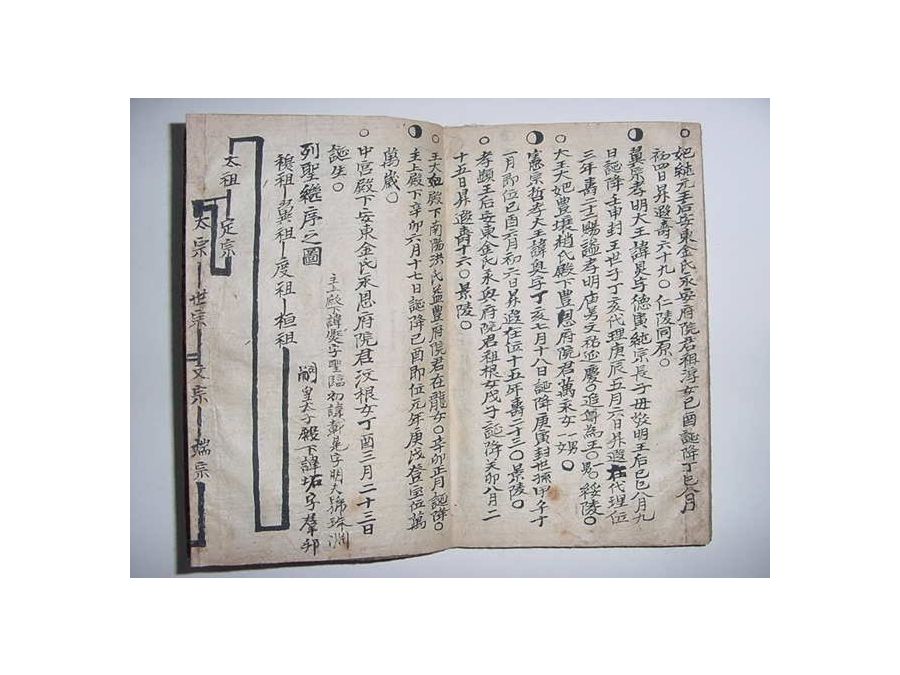 ○妃純元王后安東金氏永安府院君祖淳女己酉誕降丁巳八月
初四日昇遐壽六十九○仁陵同原○
翼宗孝明大王諱旲字德寅純宗長子母敬明王后己巳八月九
日誕降壬申封王世子丁亥代理庚辰五月六日昇遐在代理位
三年壽二十二賜謚孝明廟号文祜延慶○追尊為王○男一綏陵○
○大王大妃豊壤趙氏殿下豊恩府院君萬永女一男○
憲宗哲孝大王諱奐字丁亥七月十八日誕降庚寅封世孫甲午十
一月即位己酉六月初六日昇遐在位十五年壽二十三○景陵○
○孝顯王后安東金氏永興府院君祖根女戊子誕降天卯八月二
十五日昇遐壽十六○景陵○
○王大妃殿下南陽洪氏益豊府院君在龍女○辛卯正月誕降○
主上殿下辛卯六月十七日誕降己酉即位元年庚戌登宝位萬
萬歲○
○中宮殿下安東金氏永恩府院君汶根女丁酉三月二十三日
誕生○
主上殿下諱㷩字聖臨初諱載晃字明夫號珠淵
列聖繼序之圖
嗣皇太子殿下諱坧字羣邦
穆祖 翼祖 度祖 桓祖
太祖
定宗
太宗 世宗 文宗 端宗